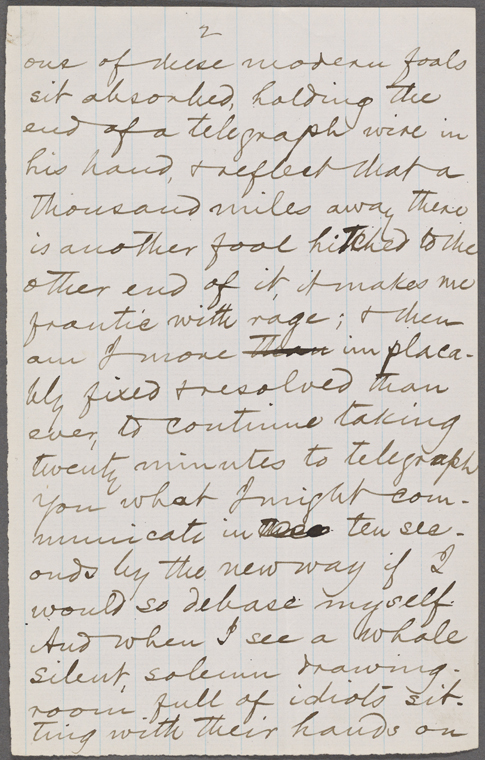 2
one of these modern fools
sit absorbed, holding the
end of a telegraph wire in
his hand, & reflect that a
thousand miles away there
is another fool hitched to the
other end of it, it makes me
frantic with rage; & then
am I more than implaca-
bly fixed & resolved than
ever, to continue taking
twenty minutes to telegraph
you what I might com-
municate in ten sec-
onds by the new way if I
would so debase myself.
And when I see a whole
silent, solemn drawing-
room full of idiots sit-
ting with their hands on